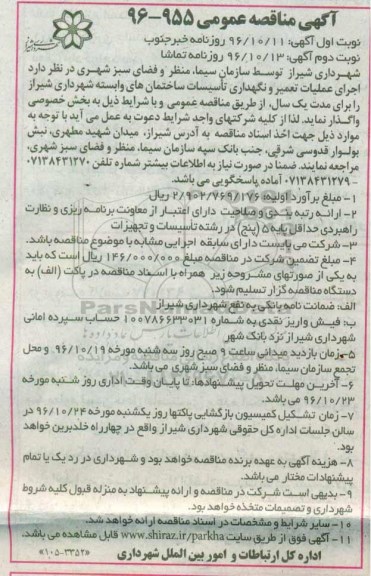 آگهی مناقصه عمومی ۹۵۵-۹۶
نوبت اول آگهی: ۹۶/۱۰/۱۱ روزنامه خبرجنوب
نوبت دوم آگهی: ۹۶/۱۰/۱۳ روزنامه تماشا
شهرداری شیراز توسط سازمان سیما، منظر و فضای سبز شهری در نظر دارد
اجرای عملیات تعمیر و نگهداری تأسیسات ساختمان های وابسته شهرداری شیراز
را برای مدت یک سال، از طریق مناقصه عمومی و با شرایط ذیل به بخش خصوصی
واگذار نماید. لذا از کلیه شرکتهای واجد شرایط دعوت به عمل می آید با توجه به
موارد ذیل جهت اخذ اسناد مناقصه به آدرس شیراز، میدان شهید مطهری، نبش
بولوار قدوسی شرقی، جنب بانک سپه سازمان سیما، منظر و فضای سبز شهری،
مراجعه نمایند. ضمناً در صورت نیاز به اطلاعات بیشتر شماره تلفن ۰۷۱۳۸۴۳۱۲۷۰
- ۰۷۱۳۸۴۳۱۲۷۹ آماده پاسخگویی می باشد.
۱- مبلغ برآورد اولیه: ۲/۹۰۲/۷۶۹/۱۷۶ ریال
۲- ارائه رتبه بندی و صلاحیت دارای اعتبار از معاونت برنامه ریزی و نظارت
راهبردی حداقل پایه ۵ (پنج) در رشته تأسیسات و تجهیزات
۳- شرکت می بایست دارای سابقه اجرایی مشابه با موضوع مناقصه باشد.
۴- مبلغ تضمین شرکت در مناقصه مبلغ ۱۴۶/۰۰۰/۰۰۰ ریال است که باید
به یکی از صورتهای مشروحه زیر همراه با اسناد مناقصه در پاکت (الف) به
دستگاه مناقصه گزار تسلیم شود.
الف: ضمانت نامه بانکی به نفع شهرداری شیراز
ب: فیش واریز نقدی به شماره ۱۰۰۷۸۶۶۳۳۰۳۱ حساب سپرده امانی
شهرداری شیراز نزد بانک شهر
۵- زمان بازدید میدانی ساعت ۹ صبح روز سه شنبه مورخه ۹۶/۱۰/۱۹ و محل
تجمع سازمان سیما، منظر و فضای سبز شهری می باشد.
۶- آخرین مهلت تحویل پیشنهادها: تا پایان وقت اداری روز شنبه مورخه
۹۶/۱۰/۲۳ می باشد.
۷- زمان تشکیل کمیسیون بازگشایی پاکتها روز یکشنبه مورخه ۹۶/۱۰/۲۴ در
سالن جلسات اداره کل حقوقی شهرداری شیراز واقع در چهارراه خلدبرین خواهد
بود.
۸- هزینه آگهی به عهده برنده مناقصه خواهد بود و شهرداری در رد یک یا تمام
پیشنهادات مختار می باشد.
۹- بدیهی است شرکت در مناقصه و ارائه پیشنهاد به منزله قبول کلیه شروط
شهرداری و تصمیمات متخذه خواهد بود.
۱۰- سایر شرایط و مشخصات در اسناد مناقصه ارائه خواهد شد.
۱۱- آگهی فوق از طریق سایت www.shiraz.ir/parkha قابل مشاهده می باشد.
اداره کل ارتباطات و امور بین الملل شهرداری «۱۰۵۰۳۳۵۲»